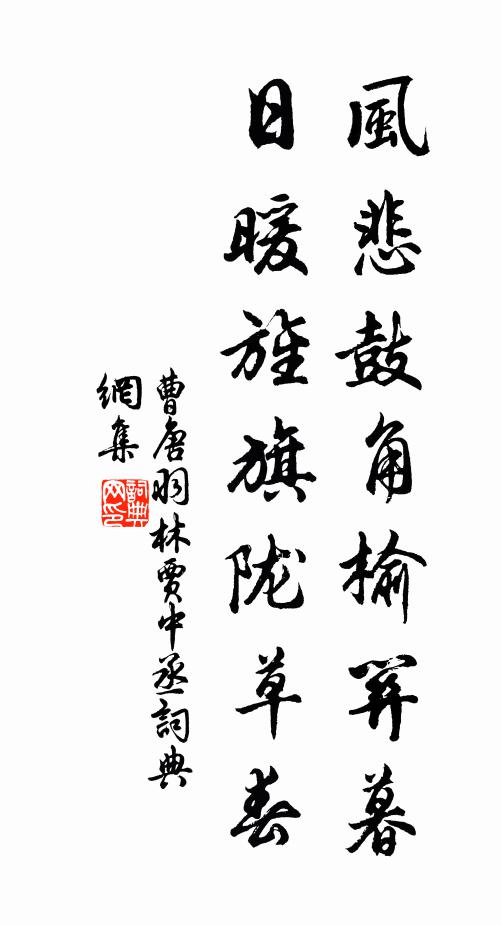 風悲鼓角榆關暮
日暖旌旗陇草春
曹唐羽林賈中丞詞典
網集
詞典
网印